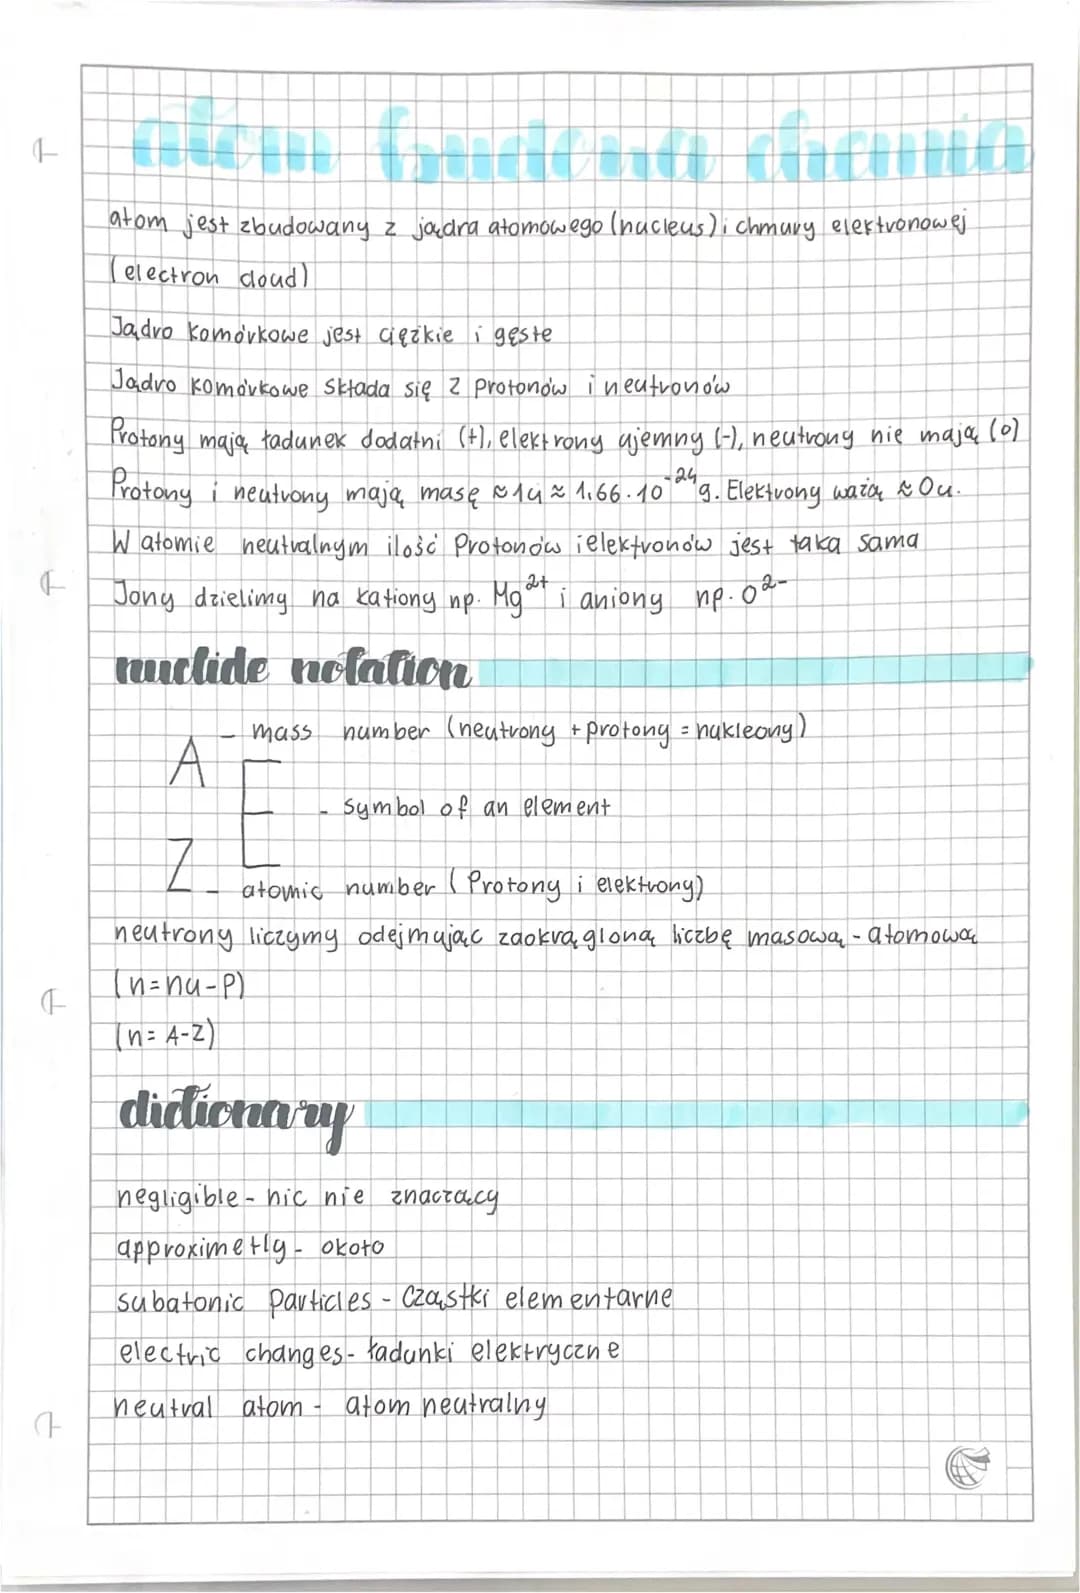 atom budowa chemia
atom jest zbudowany z jądra atomowego (nucleus) i chmury elektronowej
(electron cloud)
Jądro komórkowe jest ciężkie i gęste
Jądro komórkowe składa się z protonów i neutronów
Protony mają ładunek dodatni (+), elektrony ujemny (-), neutrony nie mają (0)
Protony i neutrony mają masę ≈1u ≈ 1,66·10⁻²⁴g. Elektrony ważą ≈0u.
W atomie neutralnym ilość protonów i elektronów jest taka sama
Jony dzielimy na kationy np. Mg²⁺ i aniony np. O²⁻
nuclide notation
A - mass number (neutrony + protony = nukleony)
E - symbol of an element
Z - atomic number (Protony i elektrony)
neutrony liczymy odejmując zaokrągloną liczbę masową - atomową
(n=nu-p)
(n= A-Z)
dictionary
negligible - nic nie znaczący
approximetly - około
subatonic particles - cząstki elementarne
electric changes - ładunki elektryczne
neutral atom - atom neutralny